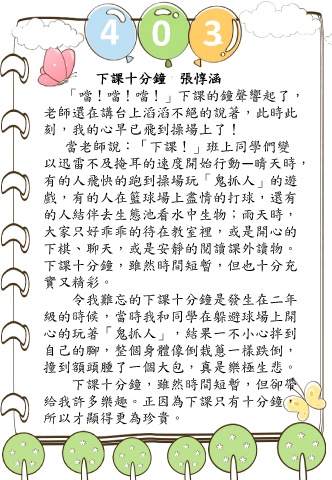 403
下課十分鐘 張惇涵
「噹！噹！噹！」下課的鐘聲響起了，
老師還在講台上滔滔不絕的說著，此時此
刻，我的心早已飛到操場上了！
當老師說：「下課！」班上同學們變
以迅雷不及掩耳的速度開始行動—晴天時，
有的人飛快的跑到操場玩「鬼抓人」的遊
戲，有的人在籃球場上盡情的打球，還有
的人結伴去生態池看水中生物；雨天時，
大家只好乖乖的待在教室裡，或是開心的
下棋、聊天，或是安靜的閱讀課外讀物。
下課十分鐘，雖然時間短暫，但也十分充
實又精彩。
令我難忘的下課十分鐘是發生在二年
級的時候，當時我和同學在躲避球場上開
心的玩著「鬼抓人」，結果一不小心拌到
自己的腳，整個身體像倒栽蔥一樣跌倒，
撞到額頭腫了一個大包，真是樂極生悲。
下課十分鐘，雖然時間短暫，但卻帶
給我許多樂趣。正因為下課只有十分鐘，
所以才顯得更為珍貴。